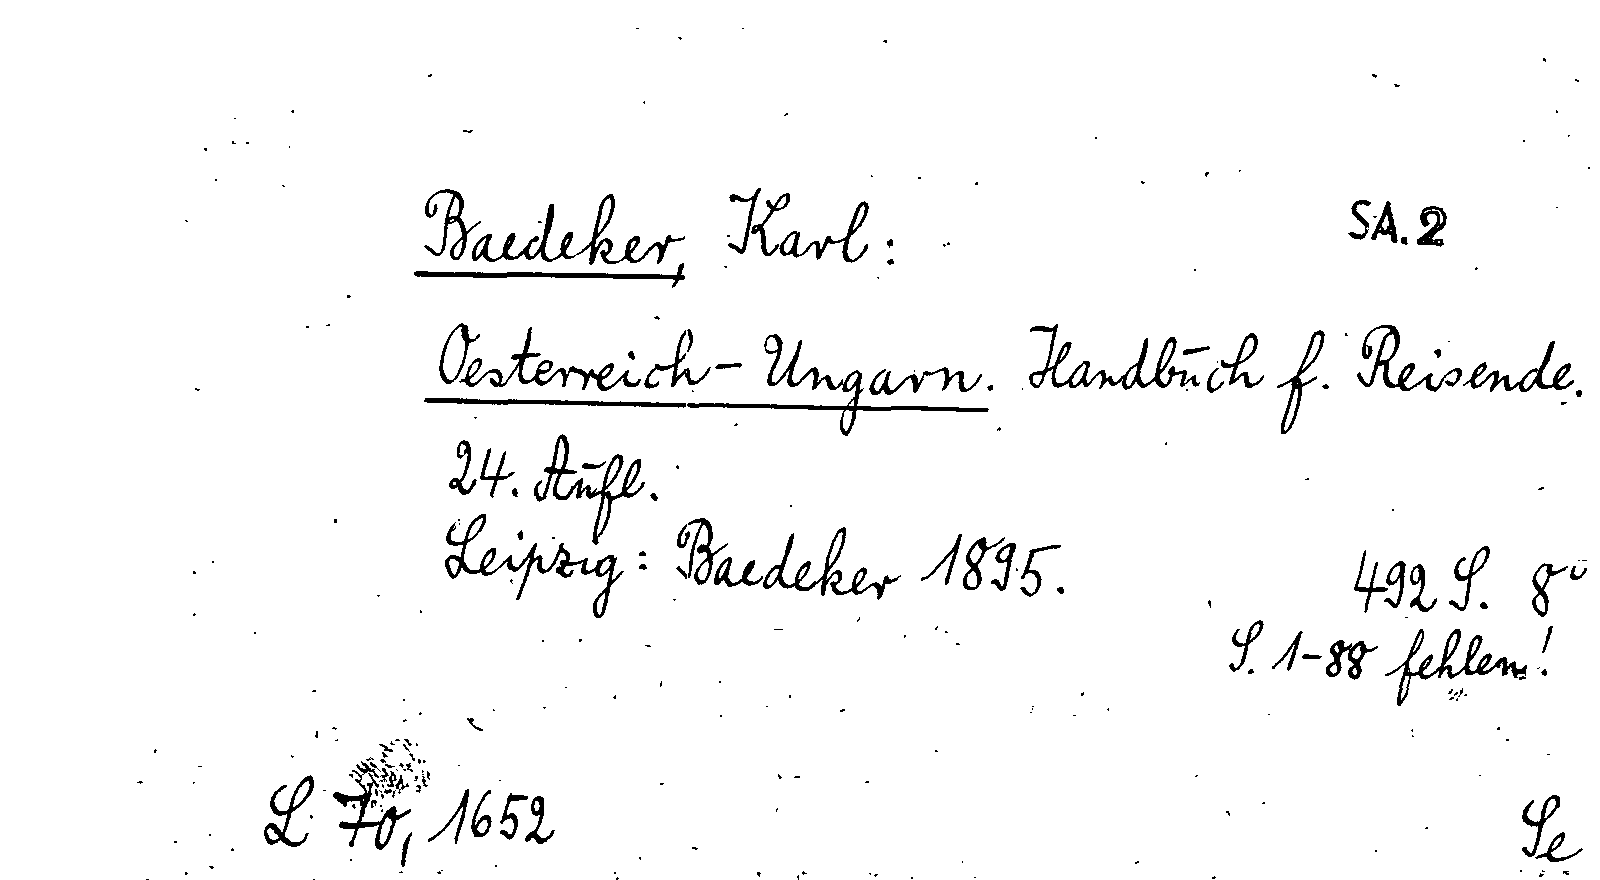 Baedeker, Karl: SA.2
Oesterreich-Ungarn. Handbuch f. Reisende.
24. Aufl.
Leipzig: Baedeker 1895. 492 S. 8°
S. 1-88 fehlen!
L 70, 1652 Se